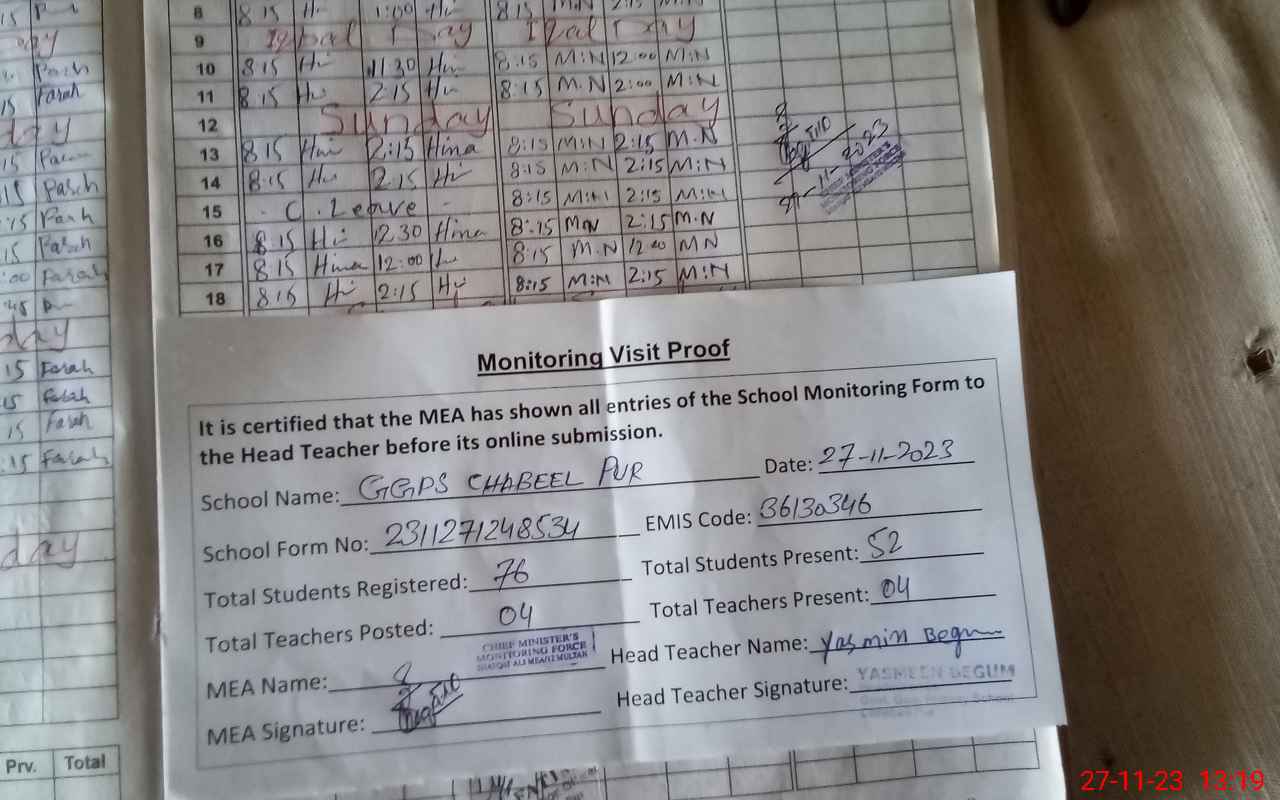 8 8 15 Hi 1:00 Hi 8 15 M:N 2:15 M:N
9 Iqbal Day Iqbal Day
10 8:15 Hi 11 30 Hi 8:15 M:N 12:00 M:N
11 8:15 Hi 2:15 Hi 8:15 M.N 2:00 M:N
12 Sunday Sunday
13 8:15 Hi 2:15 Hina 8:15 M:N 2:15 M.N
14 8:15 Hi 2:15 Hi 8:15 M:N 2:15 M:N
15 C. Leave 8:15 M:N 2:15 M:N
16 8 15 Hi 12 30 Hina 8:15 MN 2:15 M.N
17 8:15 Hina 12:00 8:15 M.N 12 00 MN
18 8:15 Hi 2:15 Hi 8:15 M:N 2:15 M:N
Farah
day
Pasch
Farah
day
15 Farah
15 Farah
15 Farah
:15 Farah
day
Prv. Total
2023
Monitoring Visit Proof
It is certified that the MEA has shown all entries of the School Monitoring Form to
the Head Teacher before its online submission.
School Name: GGPS CHABEEL PUR Date: 27-11-2023
School Form No: 2311271248534 EMIS Code: 36130346
Total Students Registered: 76 Total Students Present: 52
Total Teachers Posted: 04 Total Teachers Present: 04
CHIEF MINISTER'S
MONITORING FORCE
MEA Name: Head Teacher Name: Yasmin Begum
MEA Signature: Head Teacher Signature: YASMEEN BEGUM
27-11-23 13:19